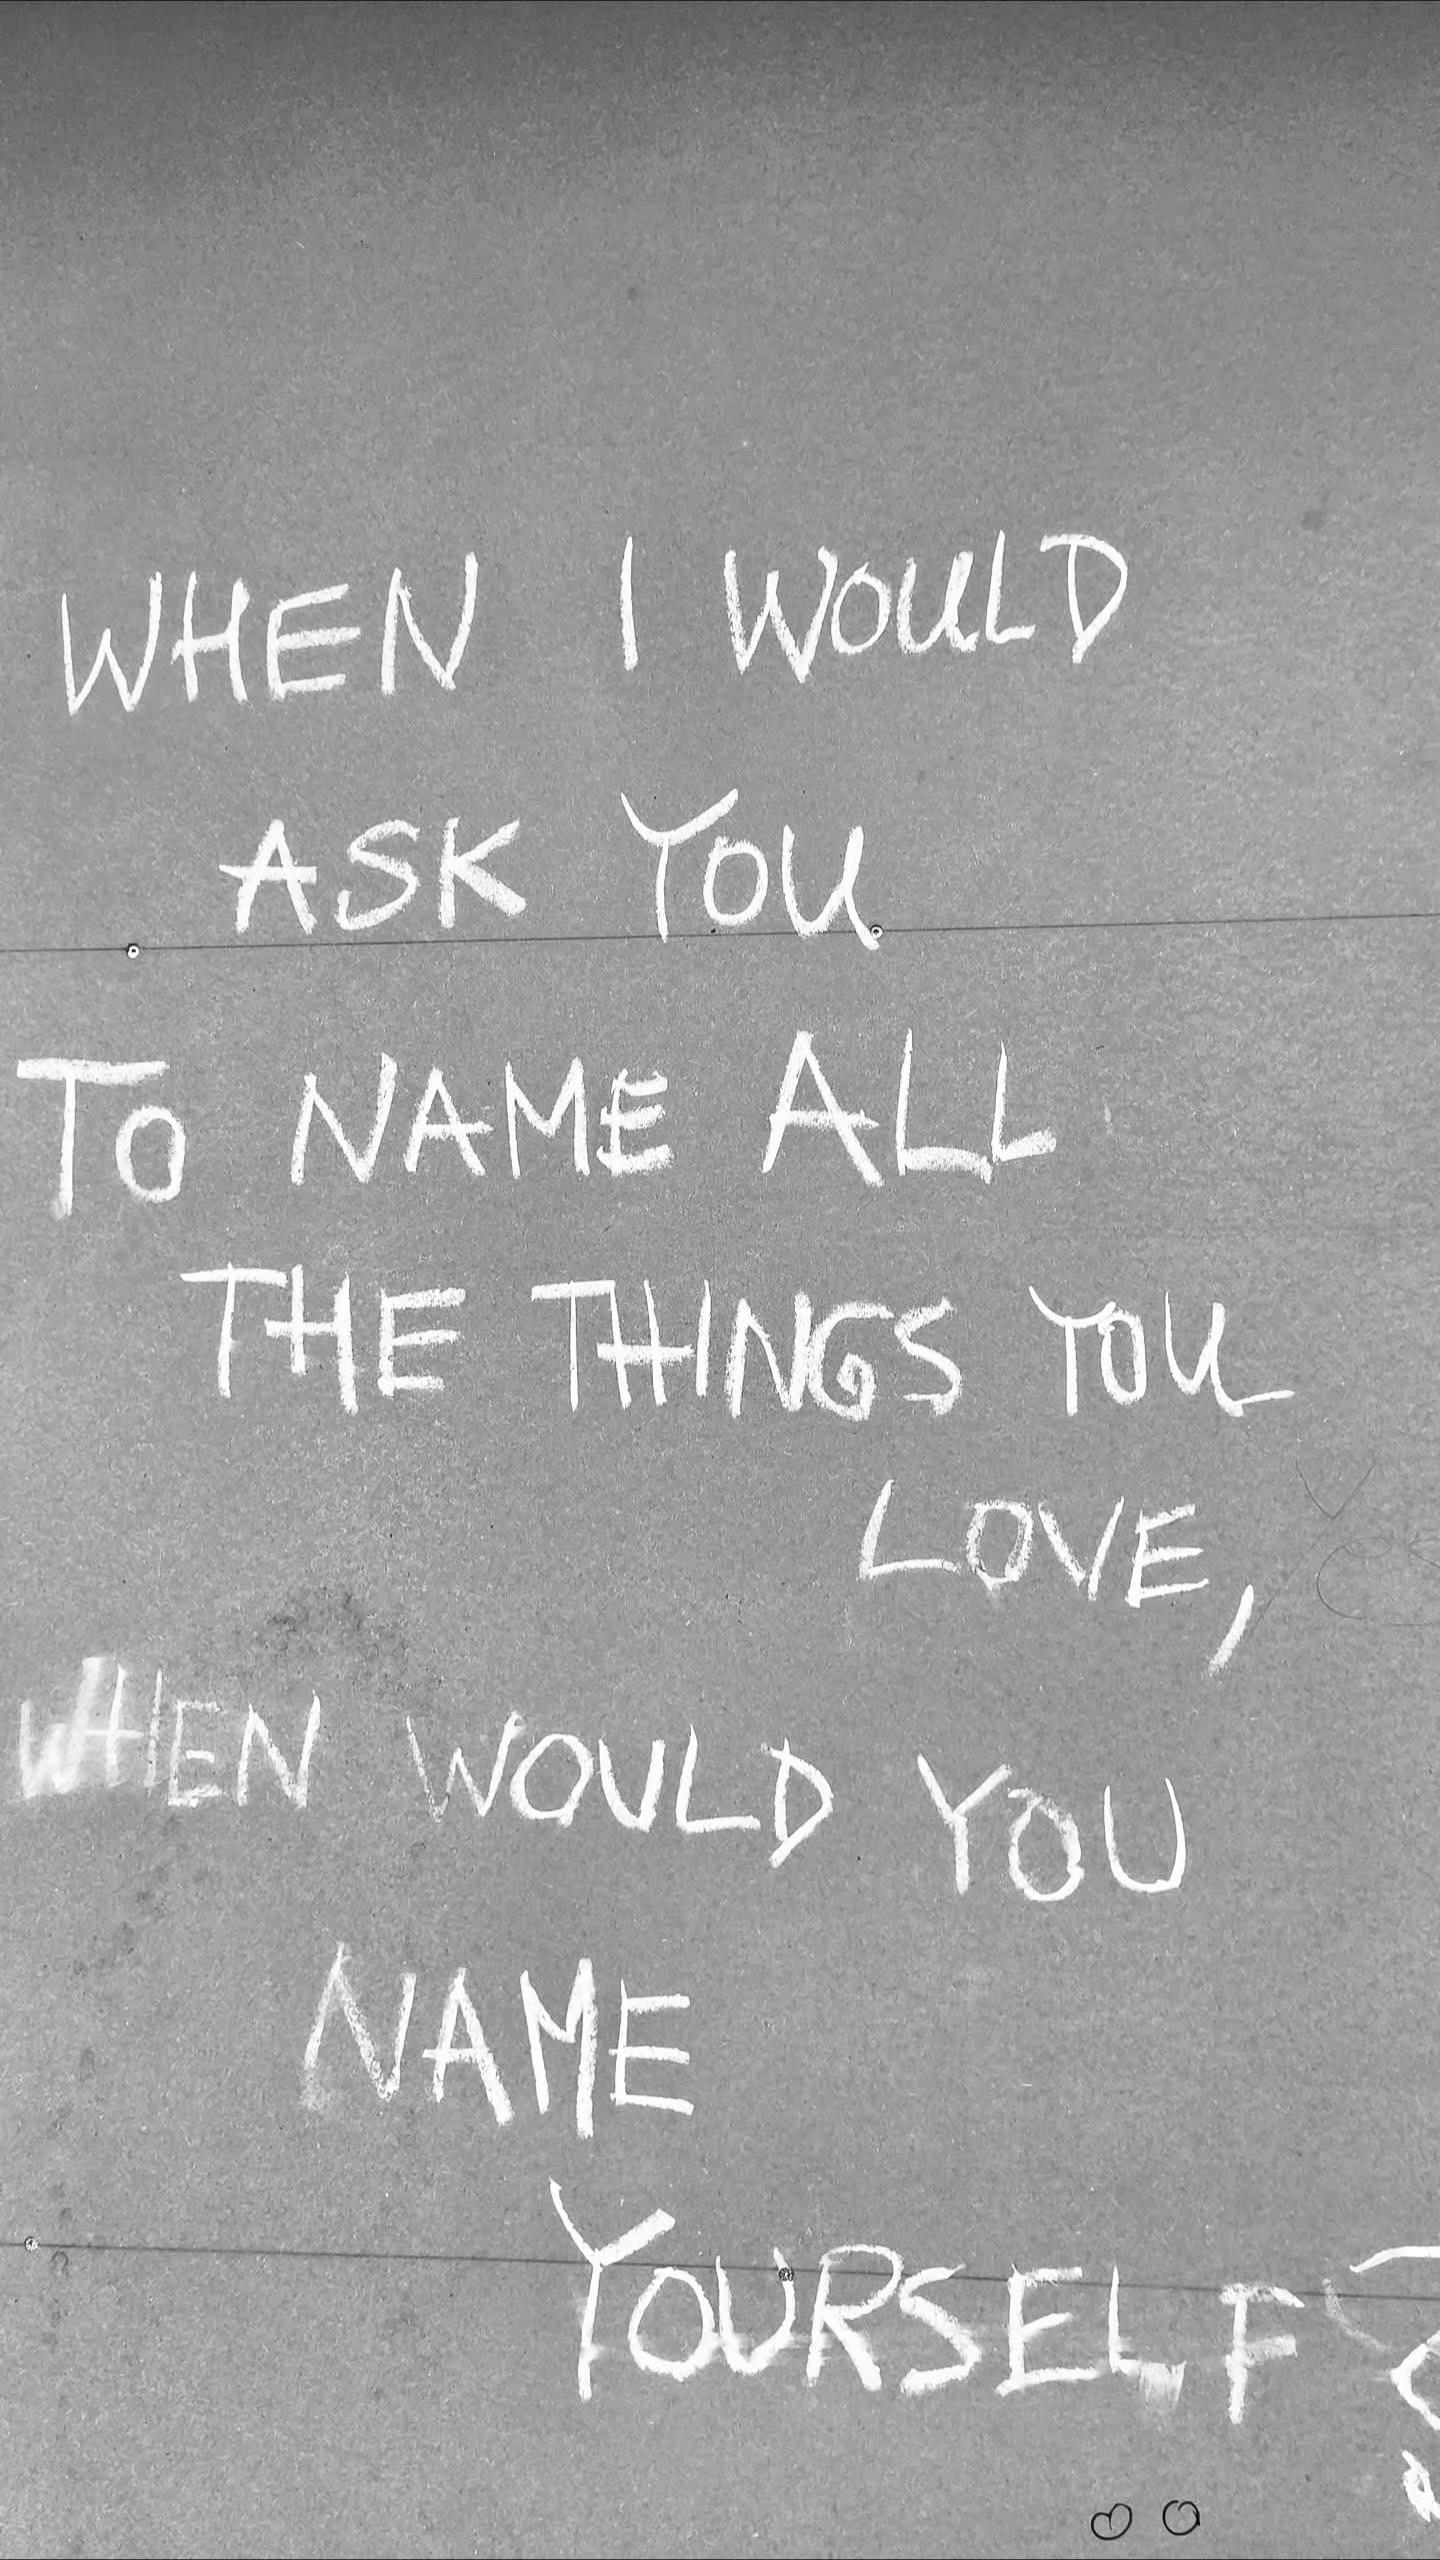 WHEN I WOULD
ASK YOU
TO NAME ALL
THE THINGS YOU
LOVE,
WHEN WOULD YOU
NAME
YOURSELF?